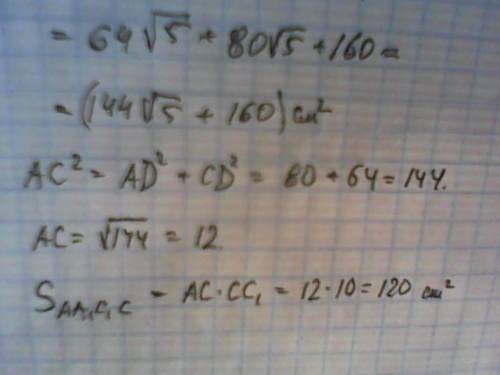 = 64√5 + 80√5 + 160 =
= (144√5 + 160) см²
AC² = AD² + CD² = 80 + 64 = 144.
AC = √144 = 12.
S_AA₁C₁C = AC·CC₁ = 12·10 = 120 см²